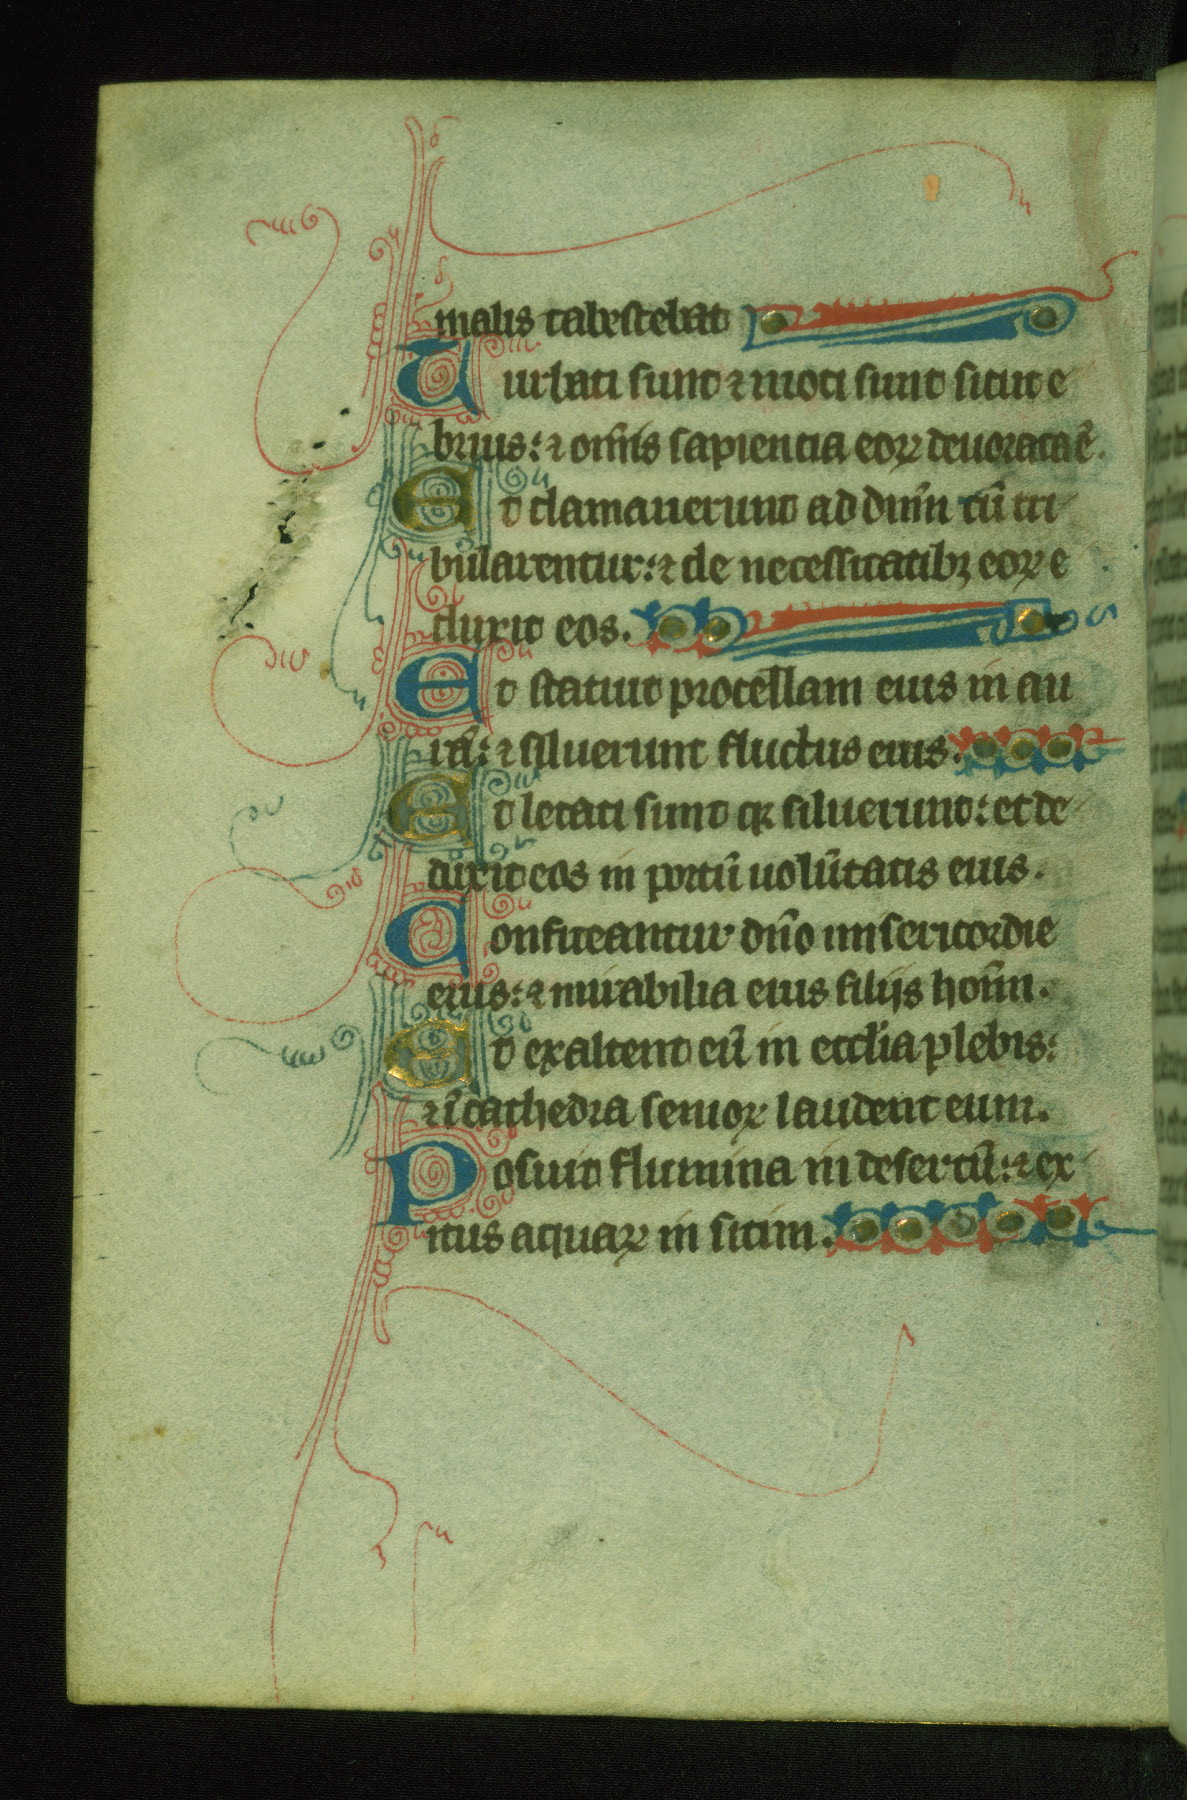 malis tabescebat
Turbati sunt ⁊ moti sunt sicut e
brius: ⁊ om̅is sapientia eoꝝ deuorata e̅.
Et clamauerunt ad dn̅m cu̅ tri
bularentur: ⁊ de necessitatibꝫ eoꝝ e
duxit eos.
Et statuit procellam eius in au
ra̅: ⁊ siluerunt fluctus eius.
Et letati sunt qꝛ siluerunt: et de
duxit eos in portu̅ uolu̅tatis eius.
Confiteantur dn̅o misericordie
eius: ⁊ mirabilia eius filijs hom̅.
Et exaltent eu̅ in eccl̅ia plebis:
⁊ i̅ cathedra senioꝝ laudent eum.
Posuit flumina in desertu̅: ⁊ ex
itus aquaꝝ in sitim.